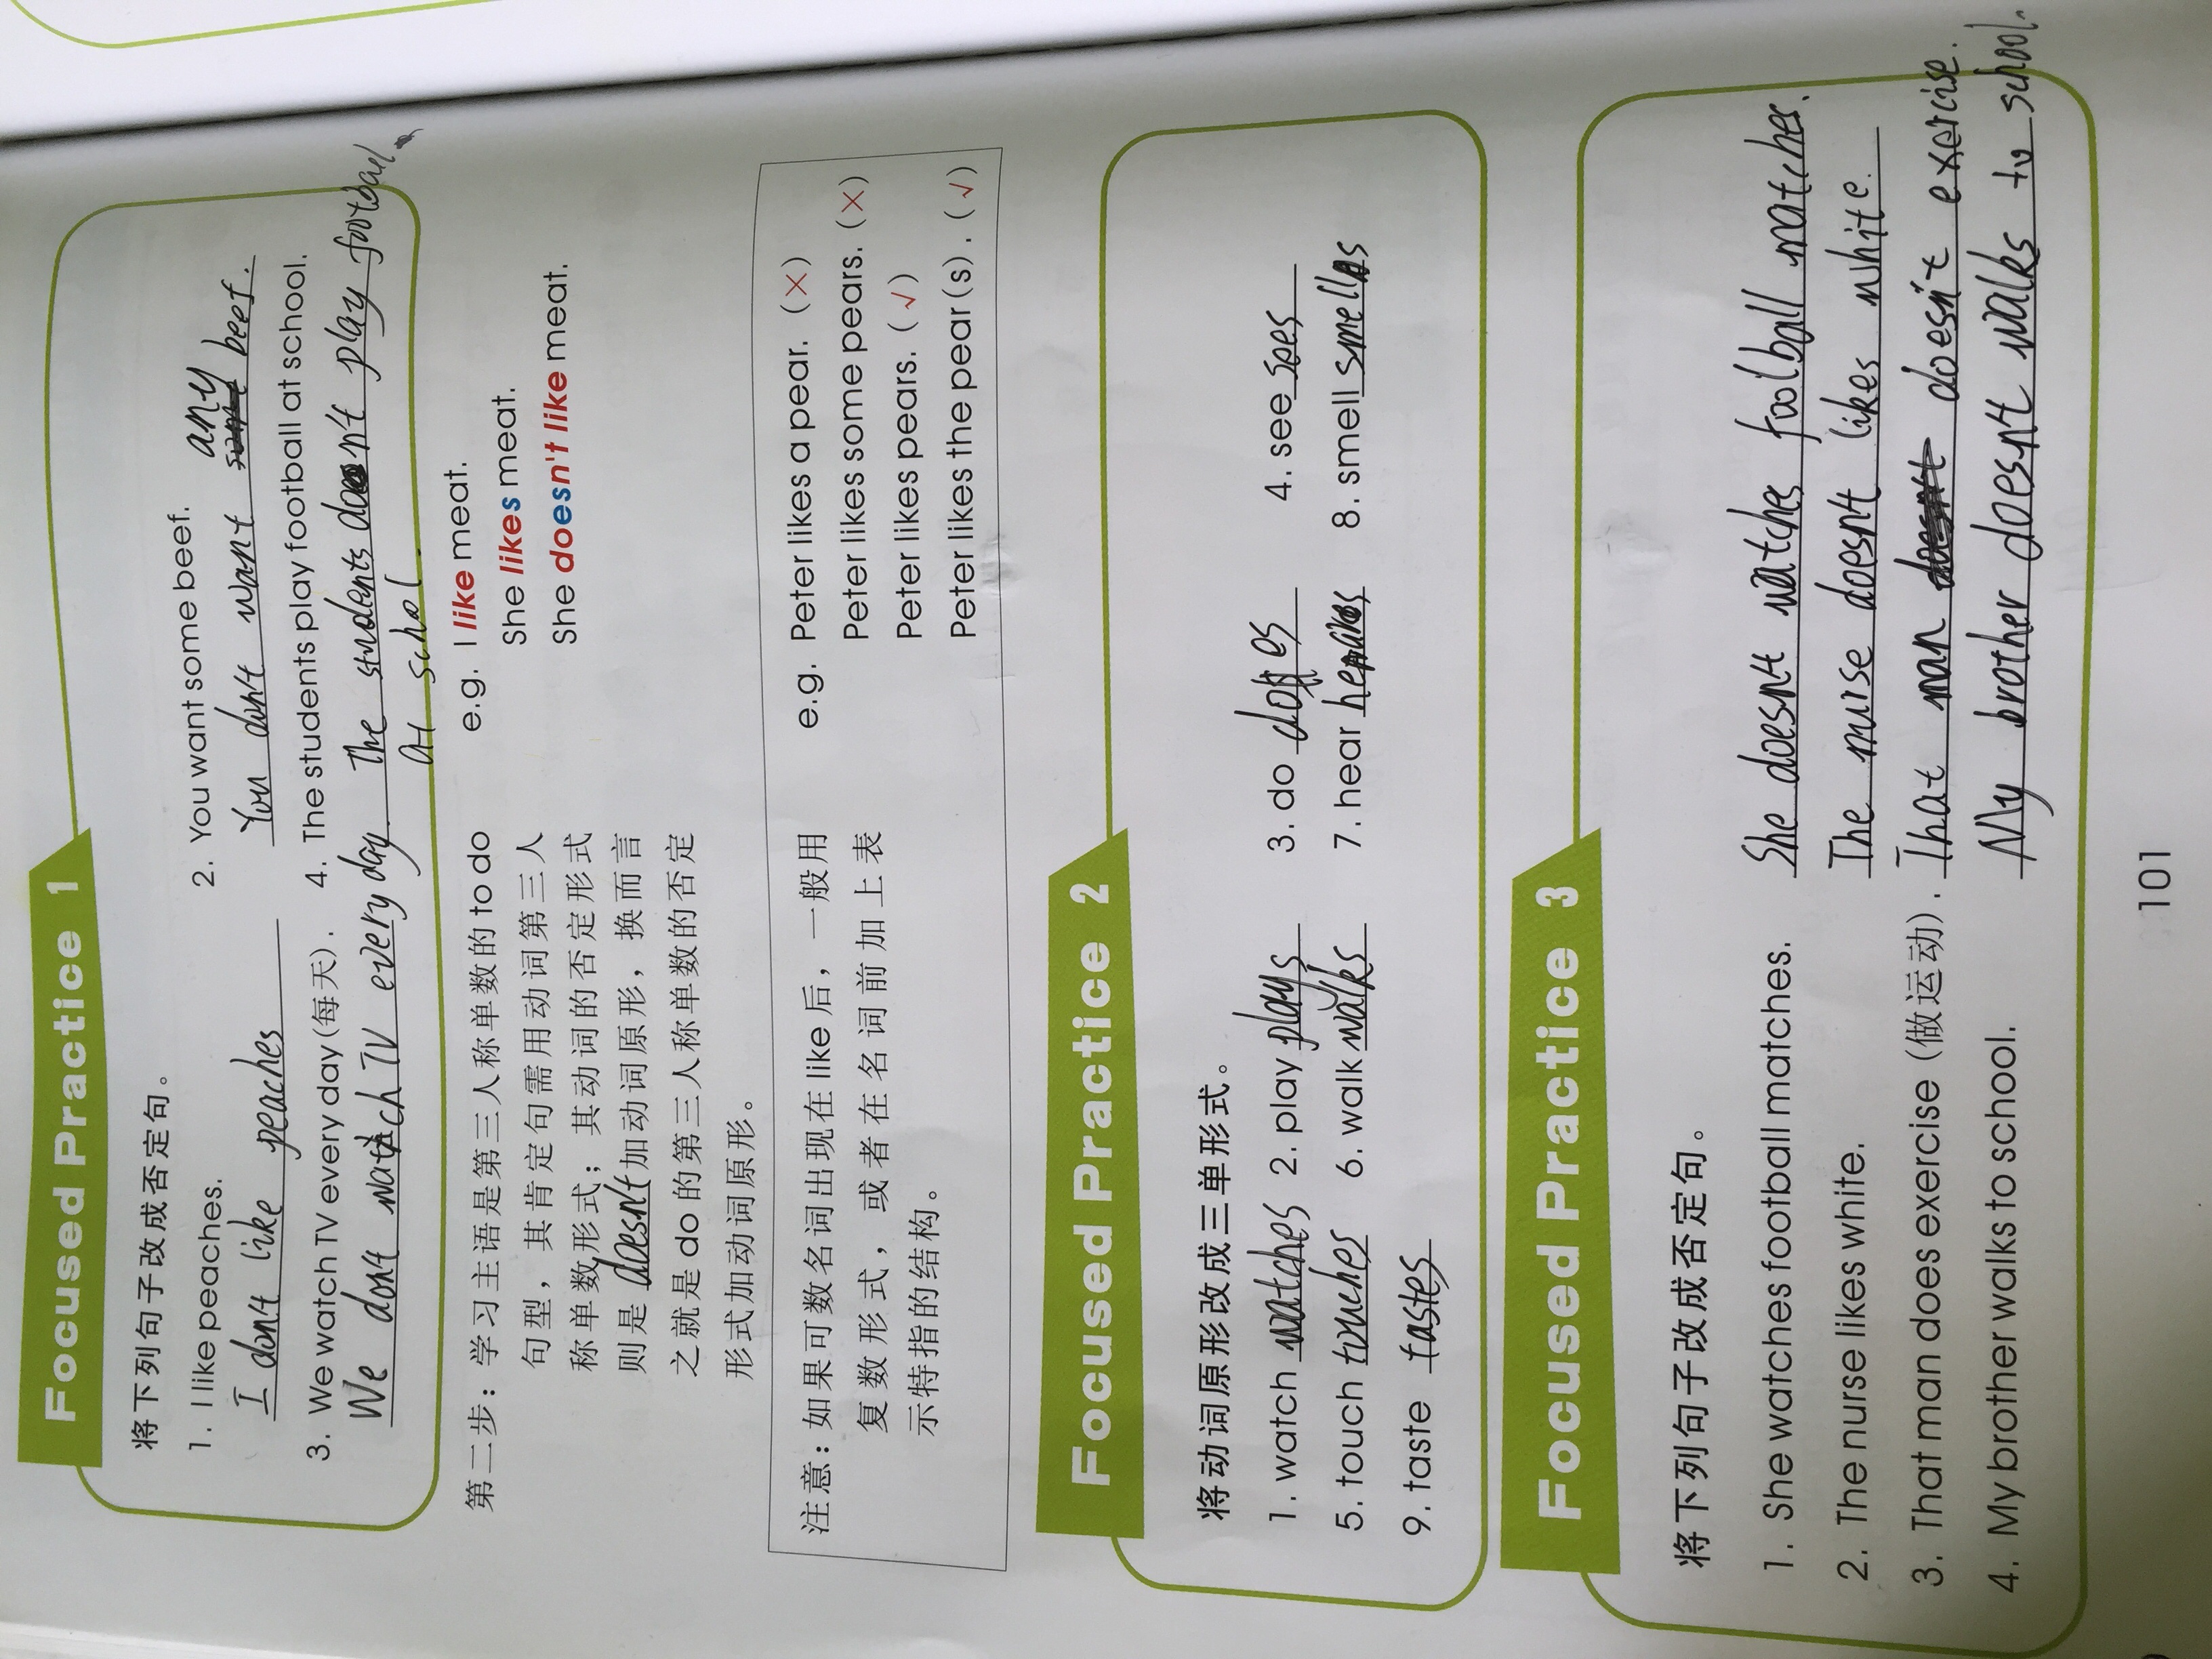 Focused Practice 1
将下列句子改成否定句。
1. I like peaches.
2. You want some beef.
any
I don't like peaches
You don't want some beef.
3. We watch TV every day (每天).
4. The students play football at school.
We don't watch TV every day.
The students don't play football
at school.
第二步：学习主语是第三人称单数的 to do
句型，其肯定句需用动词第三人
称单数形式；其动词的否定形式
则是 doesn't 加动词原形，换而言
之就是 do 的第三人称单数的否定
形式加动词原形。
e.g. I like meat.
She likes meat.
She doesn't like meat.
注意：如果可数名词出现在 like 后，一般用
复数形式，或者在名词前加上表
示特指的结构。
e.g. Peter likes a pear. (×)
Peter likes some pears. (×)
Peter likes pears. (√)
Peter likes the pear(s). (√)
Focused Practice 2
将动词原形改成三单形式。
1. watch watches 2. play plays 3. do does 4. see sees
5. touch touches 6. walk walks 7. hear 8. smell smells
9. taste tastes
Focused Practice 3
将下列句子改成否定句。
1. She watches football matches. She doesn't watches football matches.
2. The nurse likes white. The nurse doesn't likes white.
3. That man does exercise (做运动). That man doesn't doesn't exercise.
4. My brother walks to school. My brother doesn't walks to school.
101